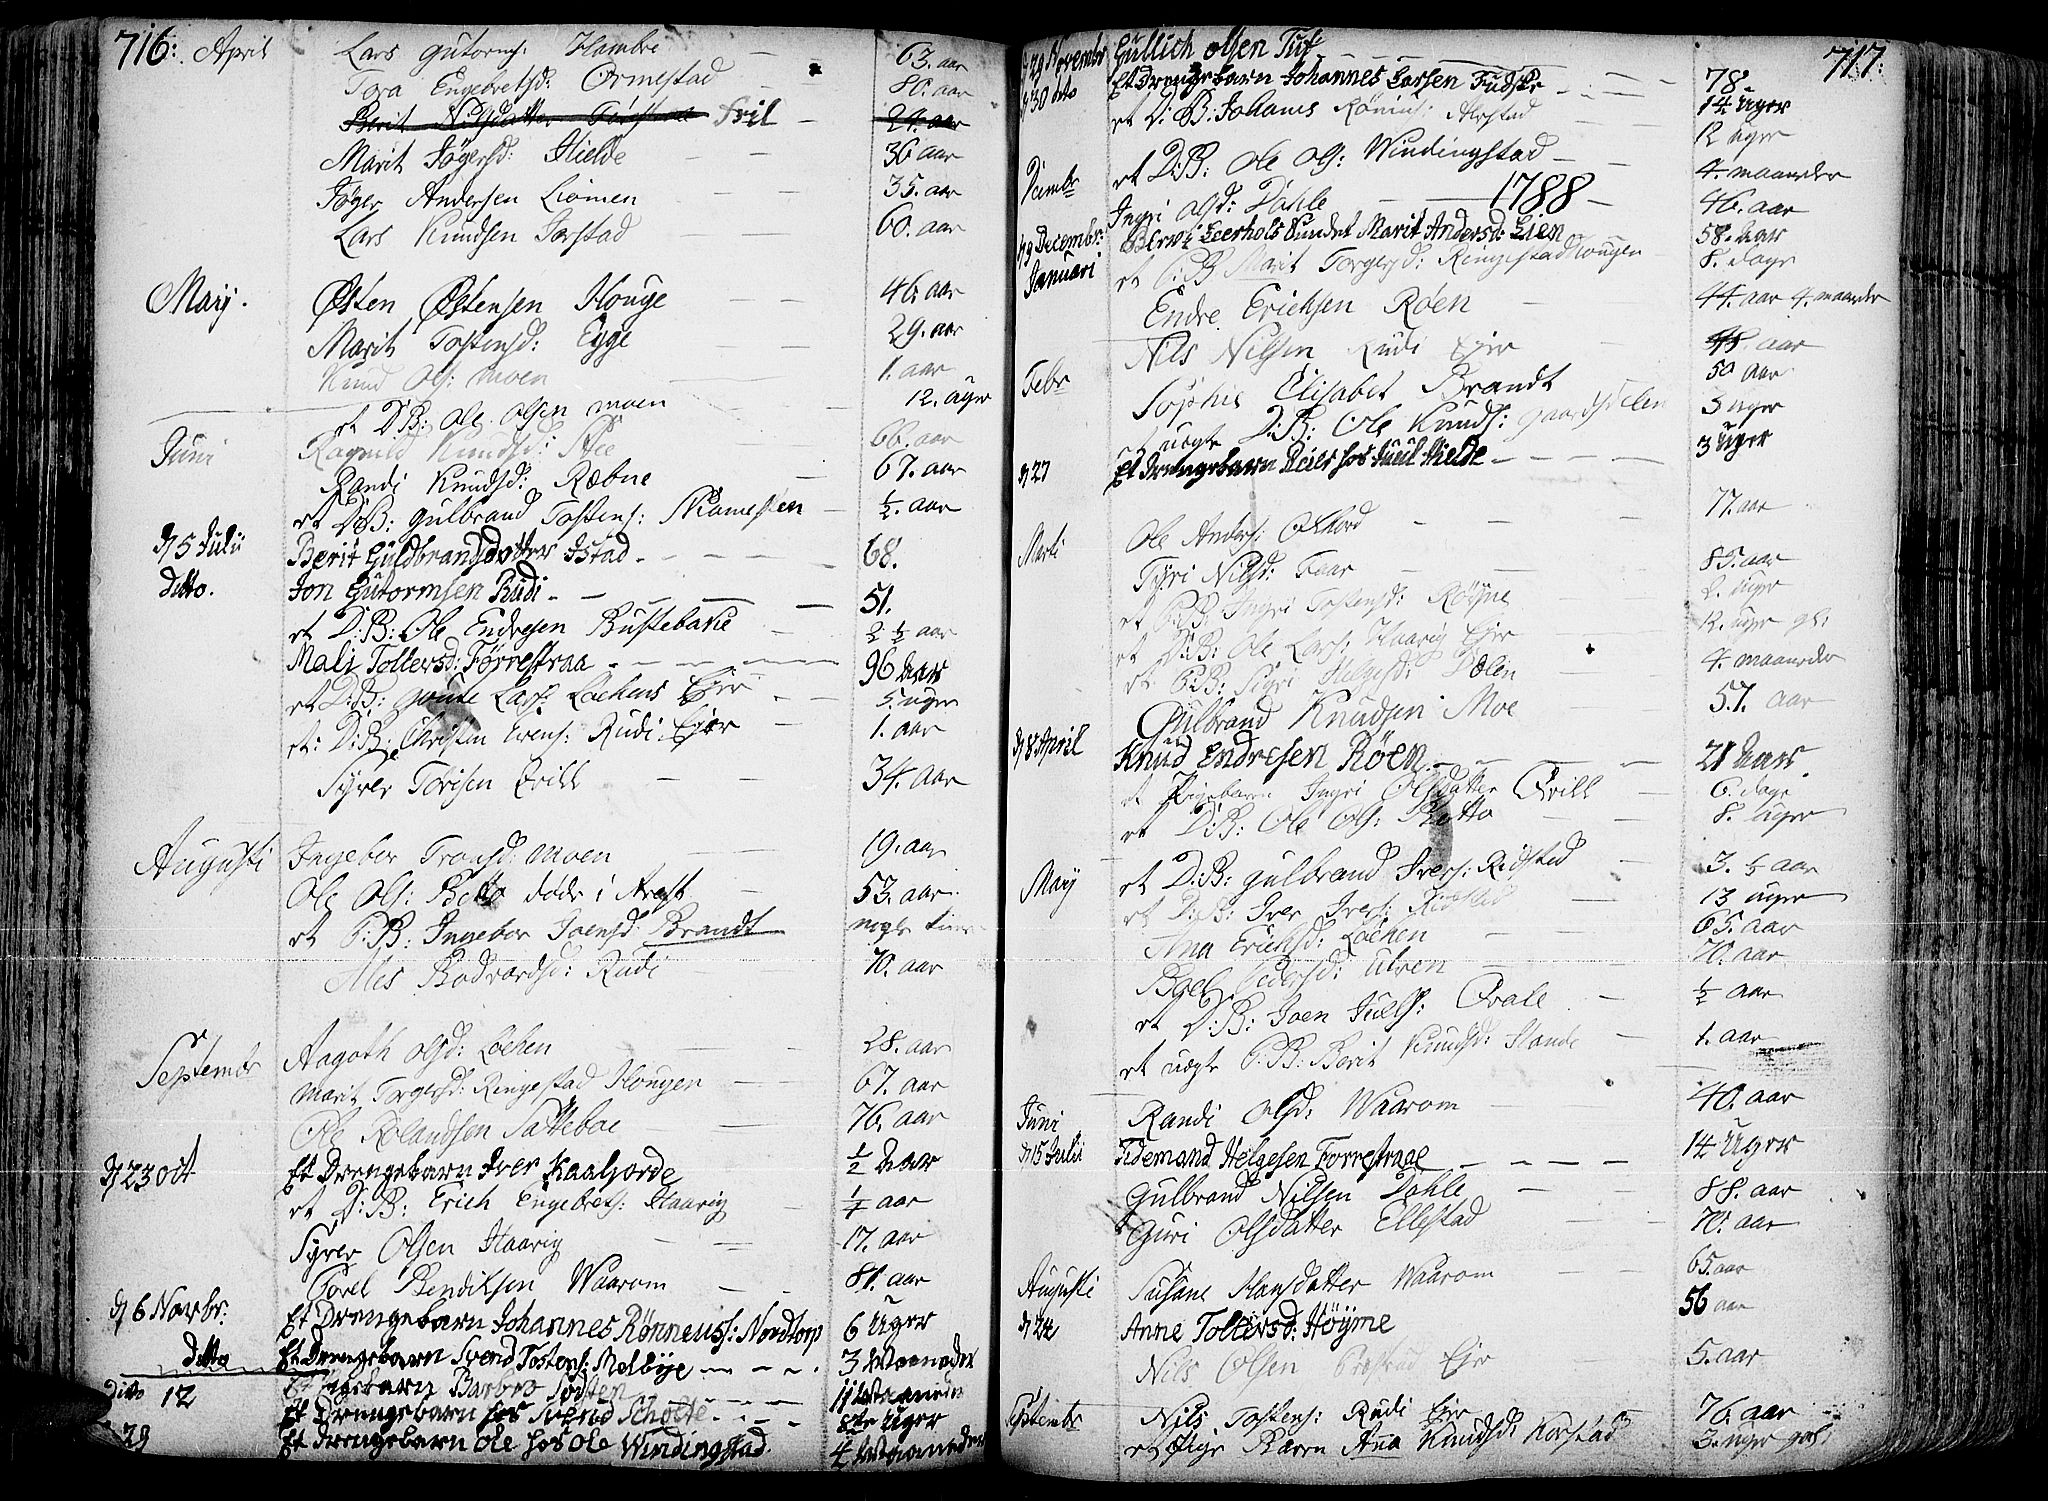 716: April Lars Gutorms: Hambre — 63. aar
Tora Engebretsd: Ormestad — 80. aar
Berit Nilsdatter fril — 24. aar
Marit Jøgersd: Hielde — 36 aar
Jøger Andersen Liømen — 35. aar
Lars Knudsen Jarstad — 60. aar
May. Østen Østensen Houge — 46. aar
Marit Tostensd: Egge — 29. aar
Knud Ols: Moen — 1. aar
et D:B: Ole Olsen Moen — 12. uger
Juni Ragnild Knudsd: — 66. aar
Randi Knudsd: Ræbne — 67. aar
et D:B: Gulbrand Tostens: — ½. aar
d 5 Julii Berit Guldbrandsdotter Istad — 68.
ditto. Jon Gutormsen Rudi — 51.
et D:B: Ole Endresen Bustebakie — 2 ½ aar
Mali Tollersd: Førrestraa — 96 aar
et D:B: Lars: Lochens Ejer — 5. uger
et: D:B: Christen Ivens: Rudi Ejer — 1. aar
Syver Torisen Qvill — 34. aar
Augusti Ingebor Tronsd: Moen — 19. aar
Ole Ols: døde i Arest — 53. aar
et P:B: Ingebor Joensd: Brandt — nogle
Ales Bodvardsd: Rudi — 70. aar
Septembr Aagoth Olsd: Lochen — 28. aar
Marit Torgersd: Ringestad Hougen — 67. aar
Ole Rolandsen Sætteboe — 76. aar
d 23 Oct Et Drengebarn Iver Kaalforde — ½ aar
et D:B: Erich Engebrets: Haarig — ¼ aar
Syver Olsen Haarig — 17. aar
Torel Bendiksen Waarom — 81. aar
d 6 Novbr: Et Drengebarn Johannes Rønneuss: Nordtorp 6 Uger
ditto Et Drengebarn Svend Tostens: Melbye — 3 Maaneder
dito 12 Barbro — 11
Et Drengebarn hos Scholte — Uger
29 Et Drengebarn Ole hos Ole Windingstad. 4 Maaneder
717:
d 29 Novembr Gullich Olsen Tuf — 78.
d 30 dito Et Drengebarn Johannes Larsen Fudske — 14 Uger
et D:B: Johans — 12 uger
et D:B: Ole Ols: Windingstad — 4. maaneder
Decmbr Ingri Olsd: Dahle — 46. aar
1788
d 9 Decembr: Marit Andersd: Lien 58. aar
Januari et P:B Marit Torgersd: Ringestadhougen 8. dage
Endre Erichsen Røen — 44. aar 4. maander
Nils Nilsen Rudi Ejer — aar
Febr Sophie Elisabet Brandt — 50 aar
et uægte D:B: Ole Knuds: 3 uger
d 27 Et Drengebarn hos Juul Hielde — 3 Uger
Marti Ole Anders: — 77. aar
Tyri Nilsd: — 85. aar
et P:B: Ingri Tostensd: Røyne — 2. uger
et D:B: Ole Lars: Haarig Ejer — 12. uger
et P:B: Sigri Helgesd: — 4. maaneder
Gulbrand Knudsen Moe — 57. aar
d 8 April Knud Endresen Røen — 21 aar
et Pigebarn Ingri Olsdatter Qvill — 6. dage
et D:B: Ole Ols: — 8. uger
May et D:B: Gulbrand Ivers: Ridstad — 3. ½ aar
et D:B: Iver Ivers: Ridstad — 13 uger
Ana Erichsd: Lochen — 65. aar
Pedersd: Ulven — 70. aar
et D:B: Joen Juels: Qvale — ½ aar
et uægte P:B: Berit Knudsd: — 1. aar
Juni Randi Olsd: Waarom — 40. aar
d 15 Julii Tidemand Helgesen Forrestraae — 14 Uger
Gulbrand Nilsen Dahle — 88. aar
Guri Olsdatter Ellestad — 70. aar
Augusti Susane Hansdatter Waarom — 65. aar
d 24 Anne Tollersd: Høyme — 56 aar
Nils Olsen Ejer — 5. aar
Septembr Nils Tostens: Rudi Ejer — 76. aar
et Pige Barn Ana Knudsd: — 3. uger